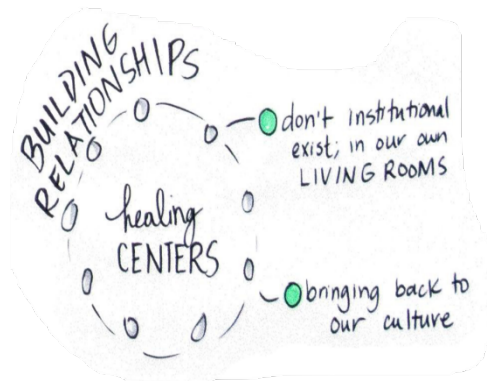 BUILDING
RELATIONSHIPS
healing
CENTERS
don't institutional
exist; in our own
LIVING ROOMS
bringing back to
our culture